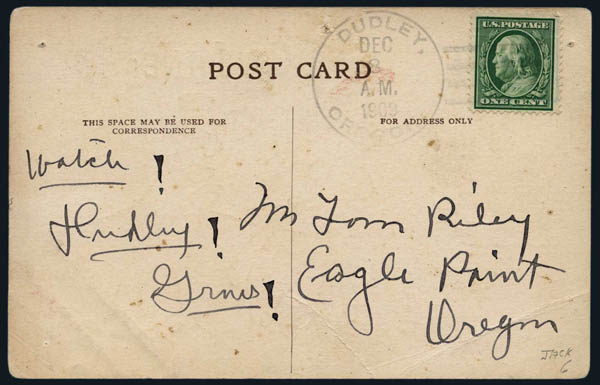 DUDLEY,
DEC
8
A.M.
1909
OREGON
U.S. POSTAGE
ONE CENT
POST CARD
THIS SPACE MAY BE USED FOR
CORRESPONDENCE
FOR ADDRESS ONLY
Watch!
Dudley!
Mr Tom Riley
Eagle Point
Oregon
JACK
6